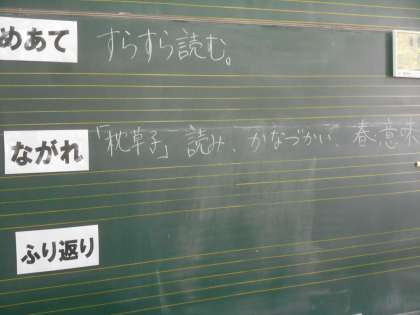 めあて すらすら読む。
ながれ 「枕草子」読み、かなづかい、春、意味
ふり返り